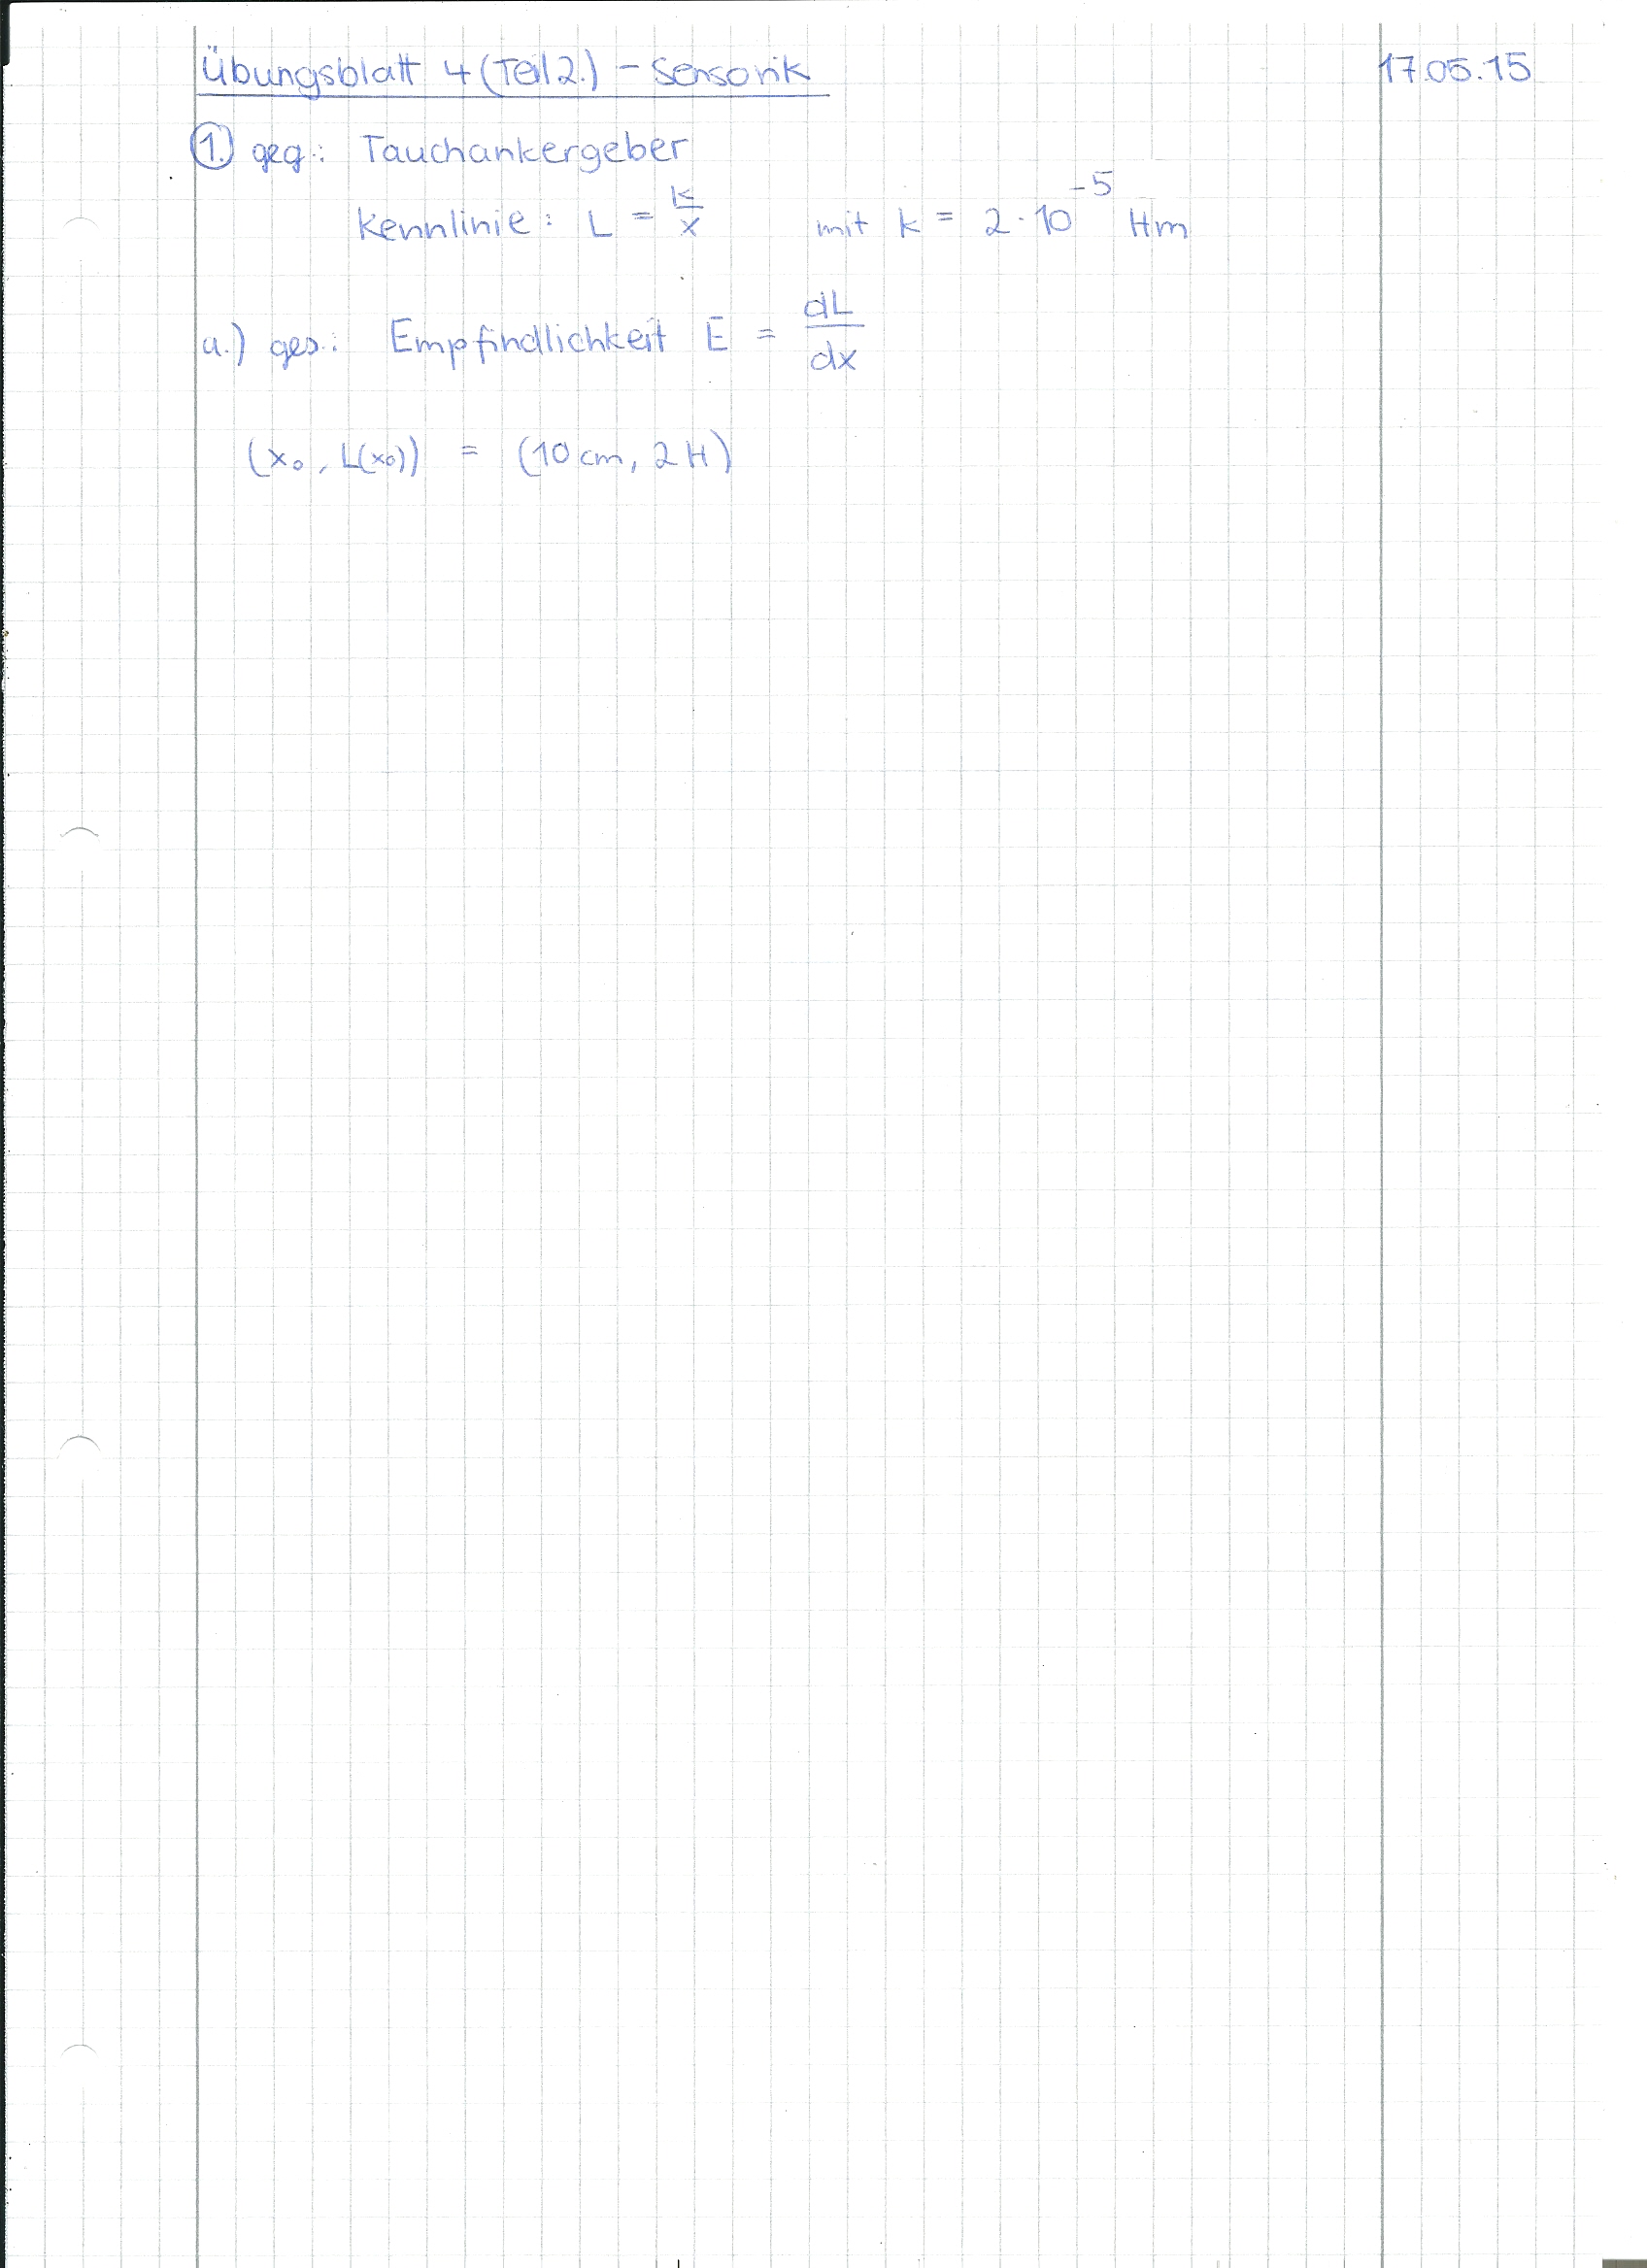 Übungsblatt 4 (Teil 2.) - Sensorik 17.05.15
1.) geg.: Tauchankergeber
Kennlinie: L = k/x mit k = 2·10^-5 Hm
a.) ges.: Empfindlichkeit E = dL/dx
(x₀, L(x₀)) = (10 cm, 2 H)